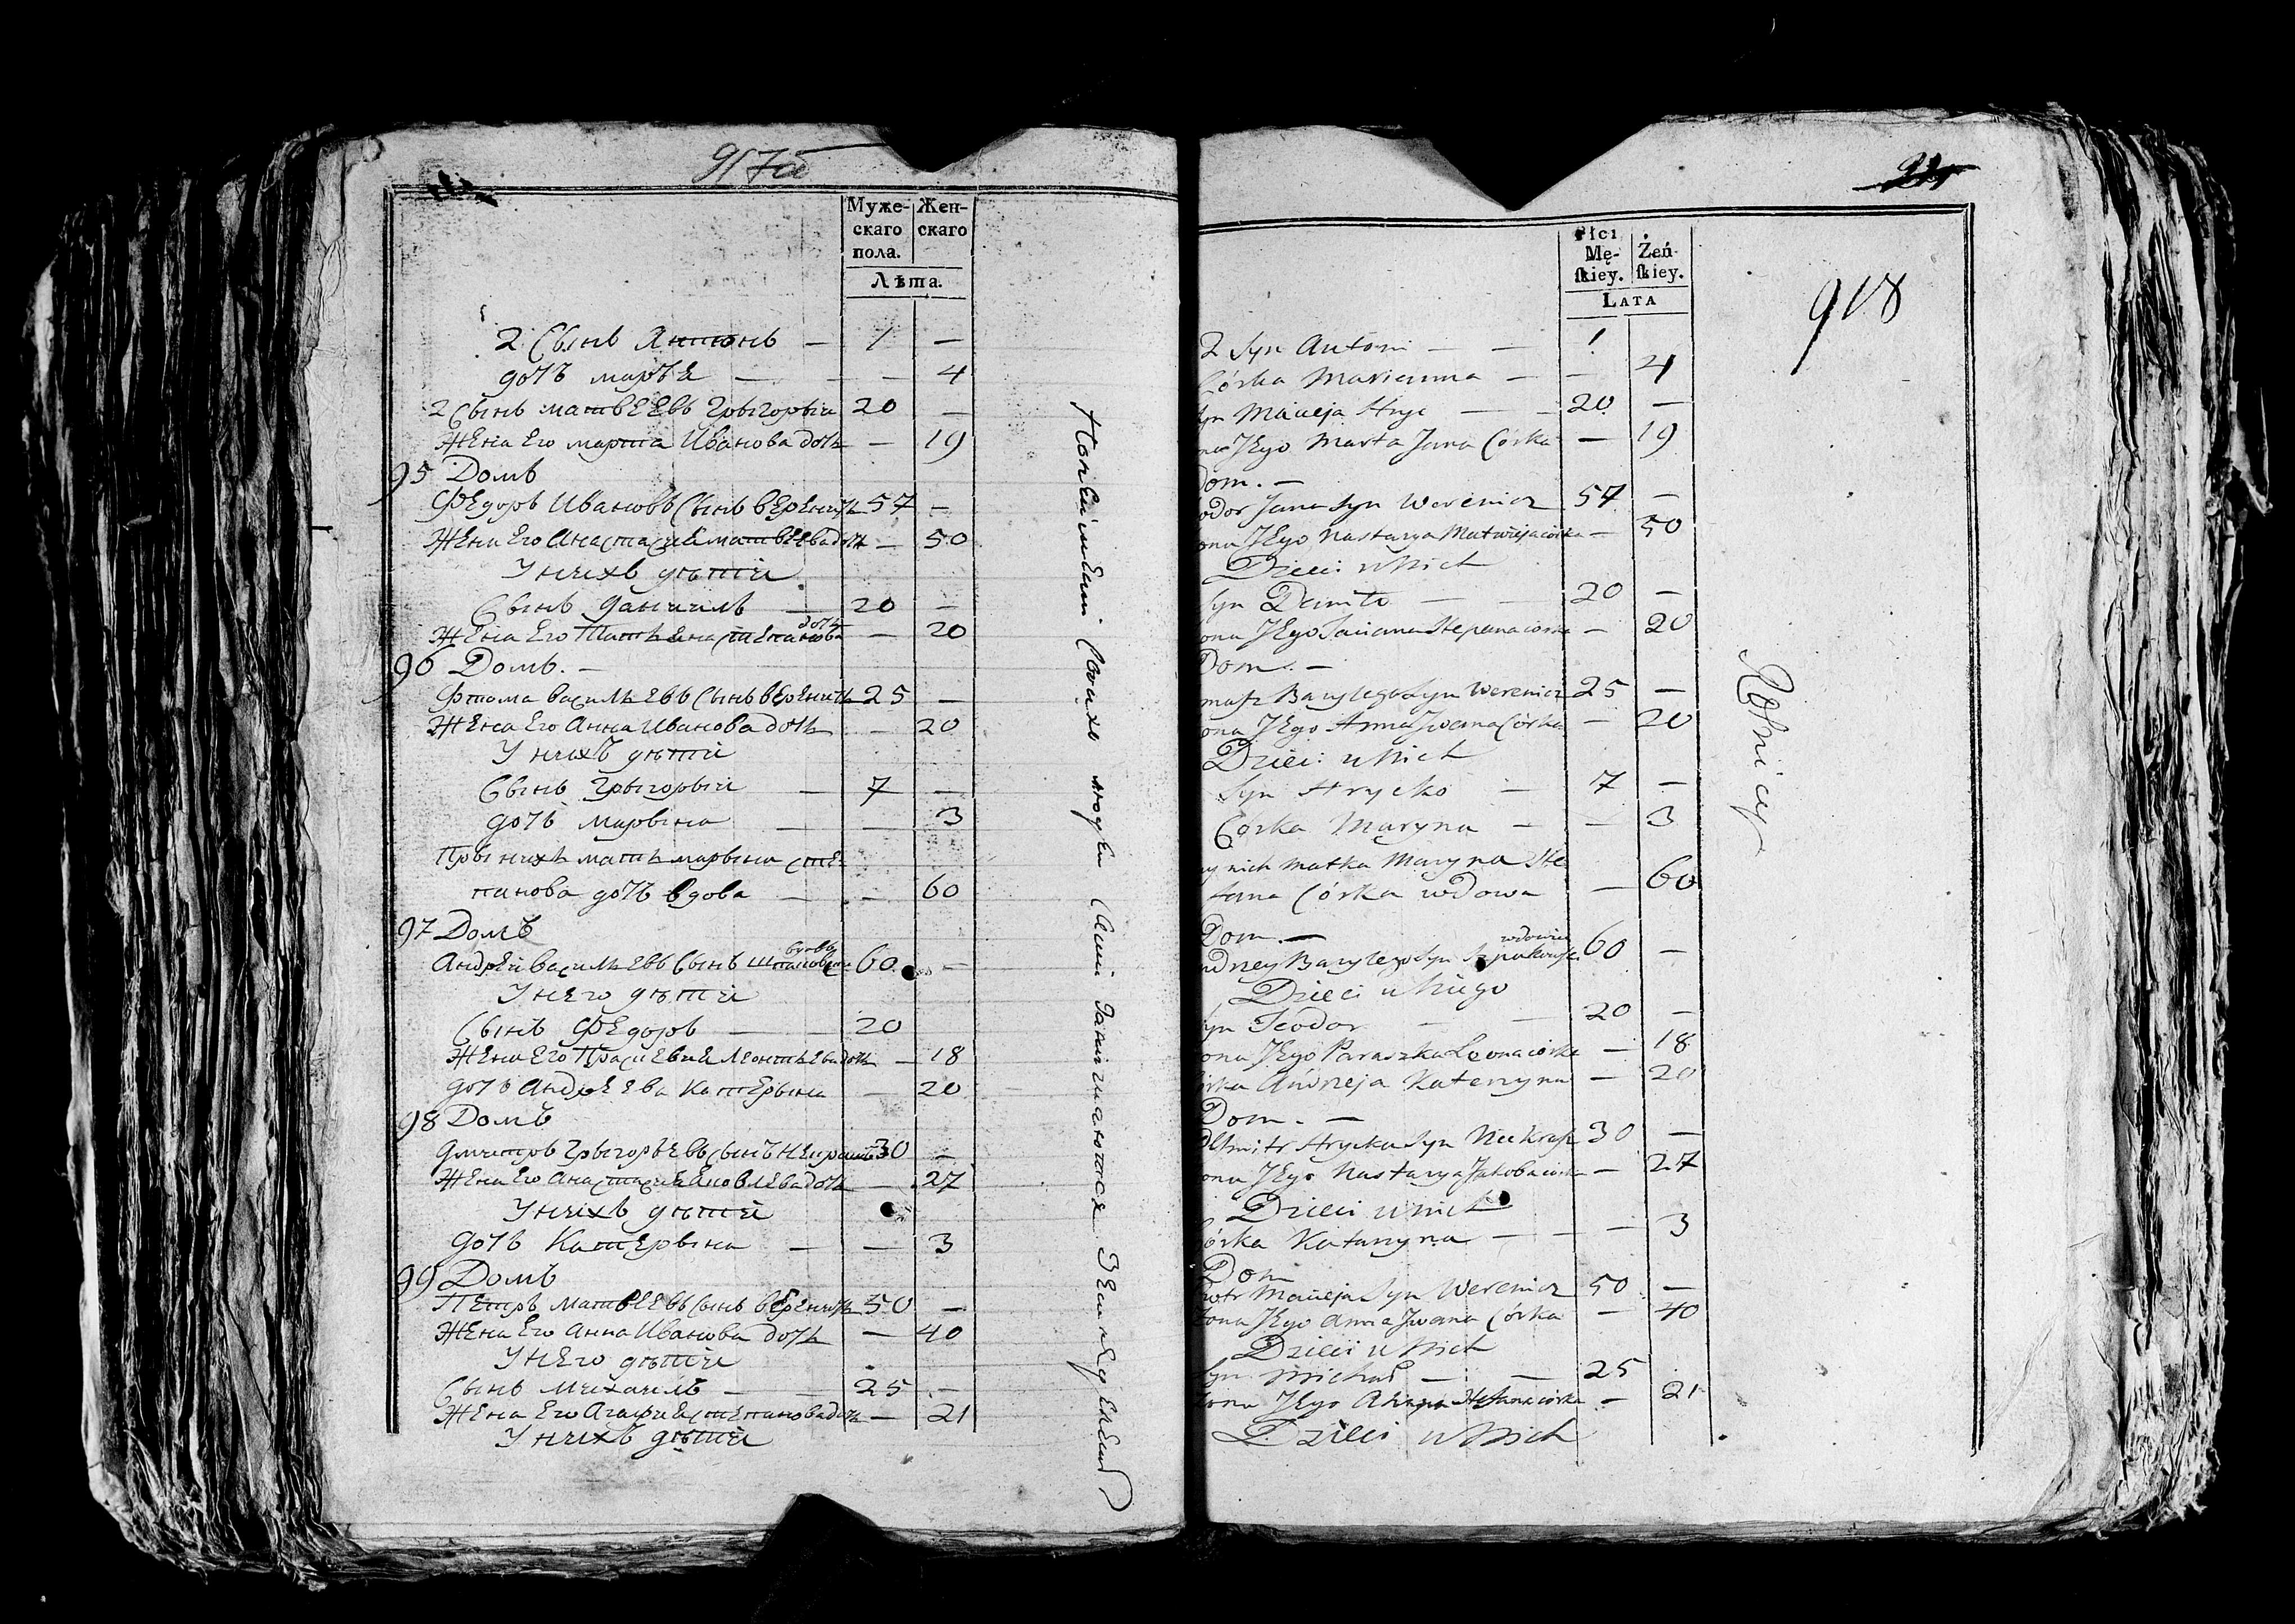 917об
Муже- Жен-
скаго скаго
пола.
Лѣта.
2 Сынъ Антонъ — 1 —
дочь марья — — 4
2 Сынъ матвеевъ Грыгорыи 20 —
Жена Его марта Иванова дочь — 19
95 Домъ
Федоръ Ивановъ Сынъ вереничь 57 —
Жена Его Анастасия матвеева дочь — 50
У нихъ дѣти
Сынъ Данилъ — 20 —
дочь
Жена Его Татьяна степанова — 20
96 Домъ. —
Фтома васильевъ Сынъ вереничь 25 —
Жена Его Анна Иванова дочь — 20
У нихъ дѣти
Сынъ Грыгорыи — 7 —
дочь марына — — 3
Прынихъ мать марына сте-
панова дочь вдова — — 60
97 Домъ
Андреи васильевъ Сынъ 60 —
У него дѣти
Сынъ Федоръ — — 20
Жена Его Прасцевия Леонтьева дочь — 18
дочь Андреева Катерына — 20
98 Домъ
дмитръ Грыгорьевъ сынъ 30 —
Жена Его Анастасия Яковлева дочь — 27
У нихъ дѣти
дочь Катерына — — 3
99 Домъ
Петръ матвеевъ Сынъ вереничь 50 —
Жена Его Анна Иванова дочь — 40
У него дѣти
Сынъ михаилъ — — 25 —
Жена Его Агафия степанова дочь — 21
У нихъ дѣти
люди Сами Занимаются Земледелием
918
Płci
Mę- Żeń-
ſkiey. ſkiey.
LATA
2 Syn Antoni — — 1
Córka Marianna — — 4
Syn Macieja Hryc — — 20 —
Jego Marta Jana Córka — 19
Dom. —
Jana Syn Werenicz 57 —
Jego Nastazya Matwieja córka — 50
Dzieci u Nich
Syn Daniło — — 20 —
Jego Taciana Stepana corka — 20
Dom. —
Bazylego Syn Werenicz 25 —
Jego Anna Iwana Córka — 20
Dzieci u Nich
Syn Hrycko — 7 —
Córka Maryna — — 3
nich matka Maryna Ste
fana Córka wdowa — 60
Dom. —
wdowiec
Bazylego Syn 60 —
Dzieci u Niego
Syn Teodor — — 20 —
Jego Paraszka Leona córka — 18
Andrzeja Katerzyna — 20
Dom. —
Dmitr Hrycka Syn Niekrasz 30 —
Jego Nastazya Jakoba corka — 27
Dzieci u nich
Córka Katarzyna — — 3
Dom
Macieja Syn Werenicz 50 —
Żona Jego Anna Iwana Córka — 40
Dzieci u Nich
Syn Michał — — 25
Żona Jego Ahapa Stefana córka — 21
Dzieci u Nich
Rolnicy